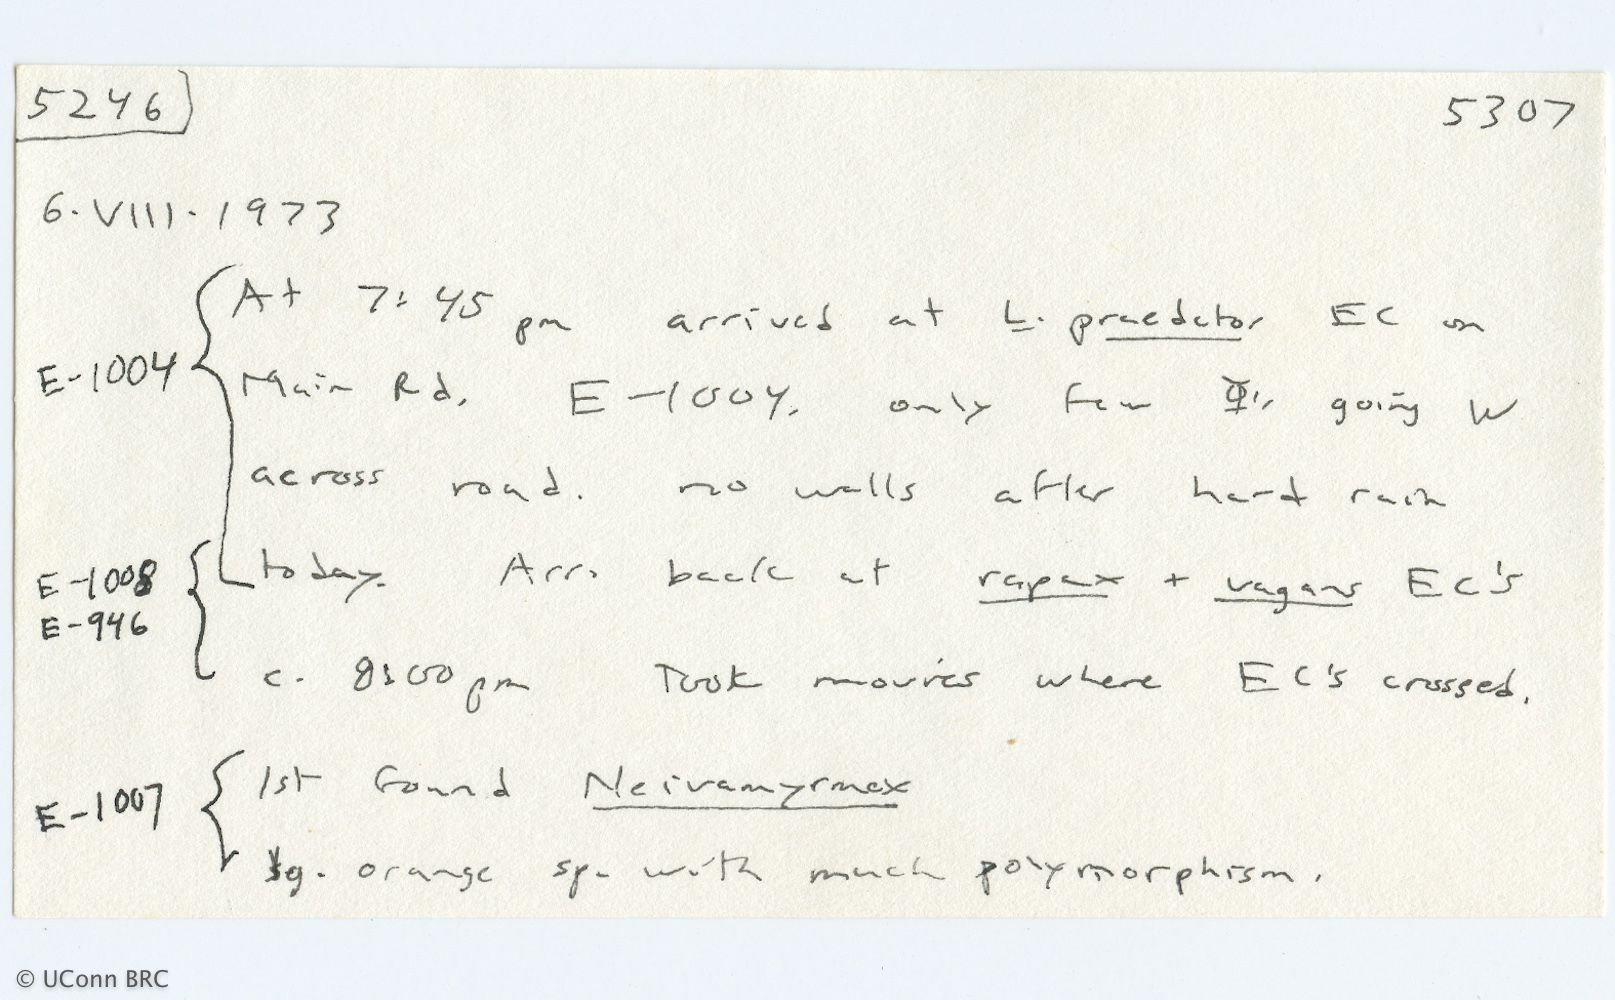 5246 5307
6.VIII.1973
At 7:45 pm arrived at L. praedator EC on
E-1004 Main Rd. E-1004. only few going W
across road. no walls after hard rain
E-1008 today. Arr. back at rapax + vagans EC's
E-946
c. 8:00 pm Took movies where EC's crossed.
1st found Neivamyrmex
E-1007
lg. orange sp. with much polymorphism.
© UConn BRC